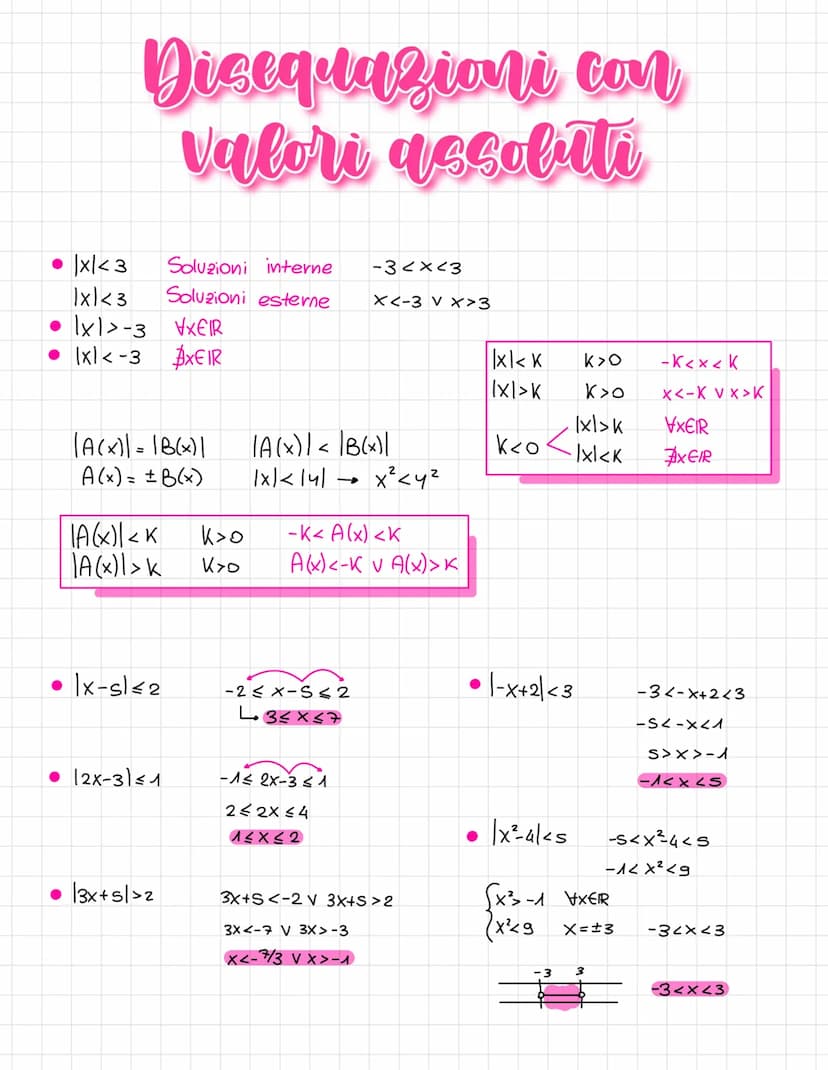 Disequazioni con
valori assoluti
• |x|<3 Soluzioni interne -3<x<3
|x|<3 Soluzioni esterne x<-3 ∨ x>3
• |x|>-3 ∀x∈IR
• |x|<-3 ∄x∈IR
|x|<K K>0 -K<x<K
|x|>K K>0 x<-K ∨ x>K
K<0 |x|>K ∀x∈IR
|x|<K ∄x∈IR
|A(x)| = |B(x)| |A(x)| < |B(x)|
A(x) = ±B(x) |x|<|y| → x²<y²
|A(x)|<K K>0 -K< A(x) <K
|A(x)|>K K>0 A(x)<-K ∨ A(x)>K
• |x-5|≤2 -2 ≤ x-5 ≤ 2
↳ 3≤x≤7
• |2x-3|≤1 -1≤ 2x-3 ≤1
2 ≤ 2x ≤ 4
1≤x≤2
• |3x+5|>2 3x+5<-2 ∨ 3x+5>2
3x<-7 ∨ 3x>-3
x<-7/3 ∨ x>-1
• |-x+2|<3 -3<-x+2<3
-5<-x<1
5>x>-1
-1<x<5
• |x²-4|<5 -5<x²-4<5
-1<x²<9
{x²>-1 ∀x∈IR
{x²<9 x=±3 -3<x<3
-3 3
-3<x<3